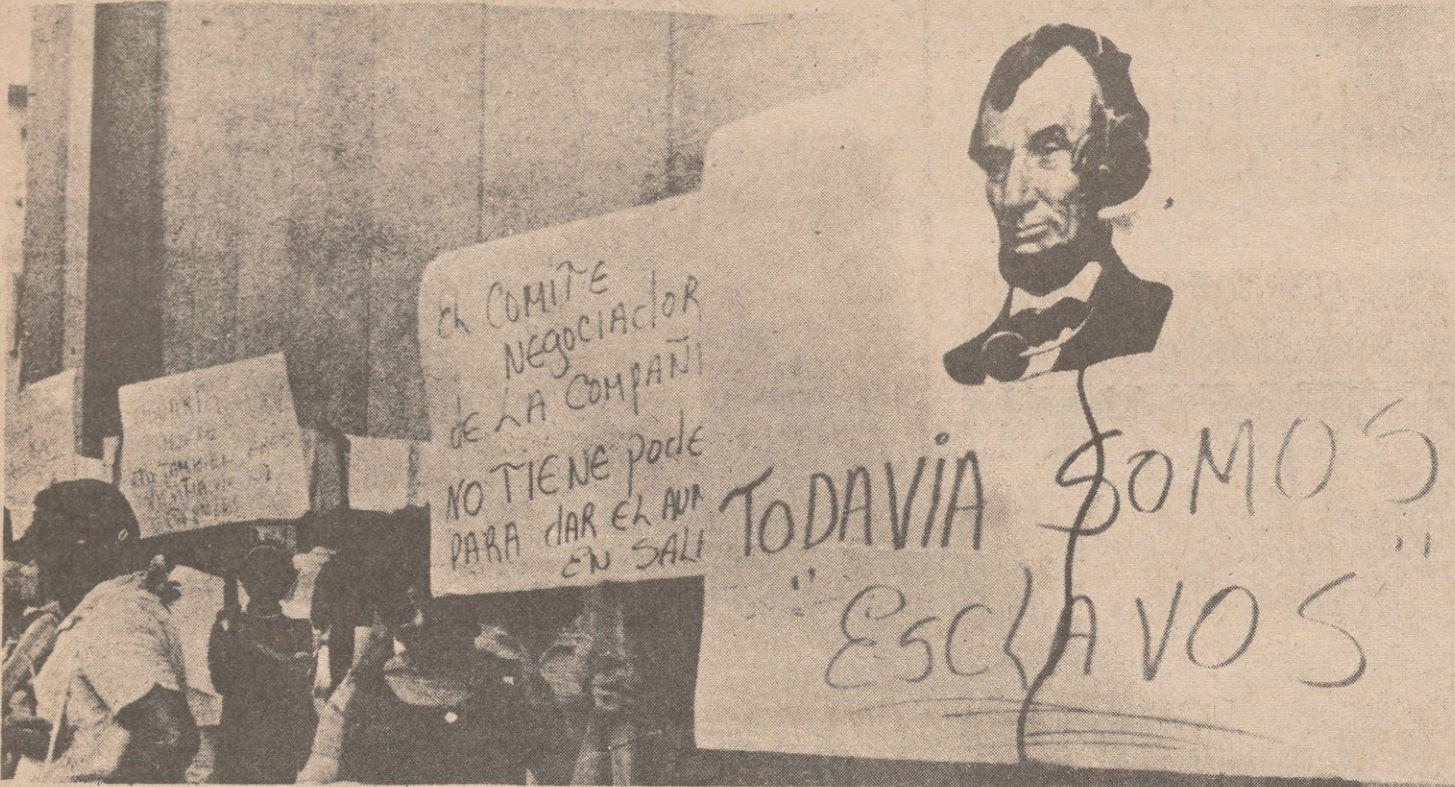 YO TAMBIEN
EL COMITE
NEGOCIADOR
de LA COMPAÑI
NO TIENE pode
PARA dAR EL AUM
EN SALA
TODAVIA SOMOS
"ESCLAVOS"